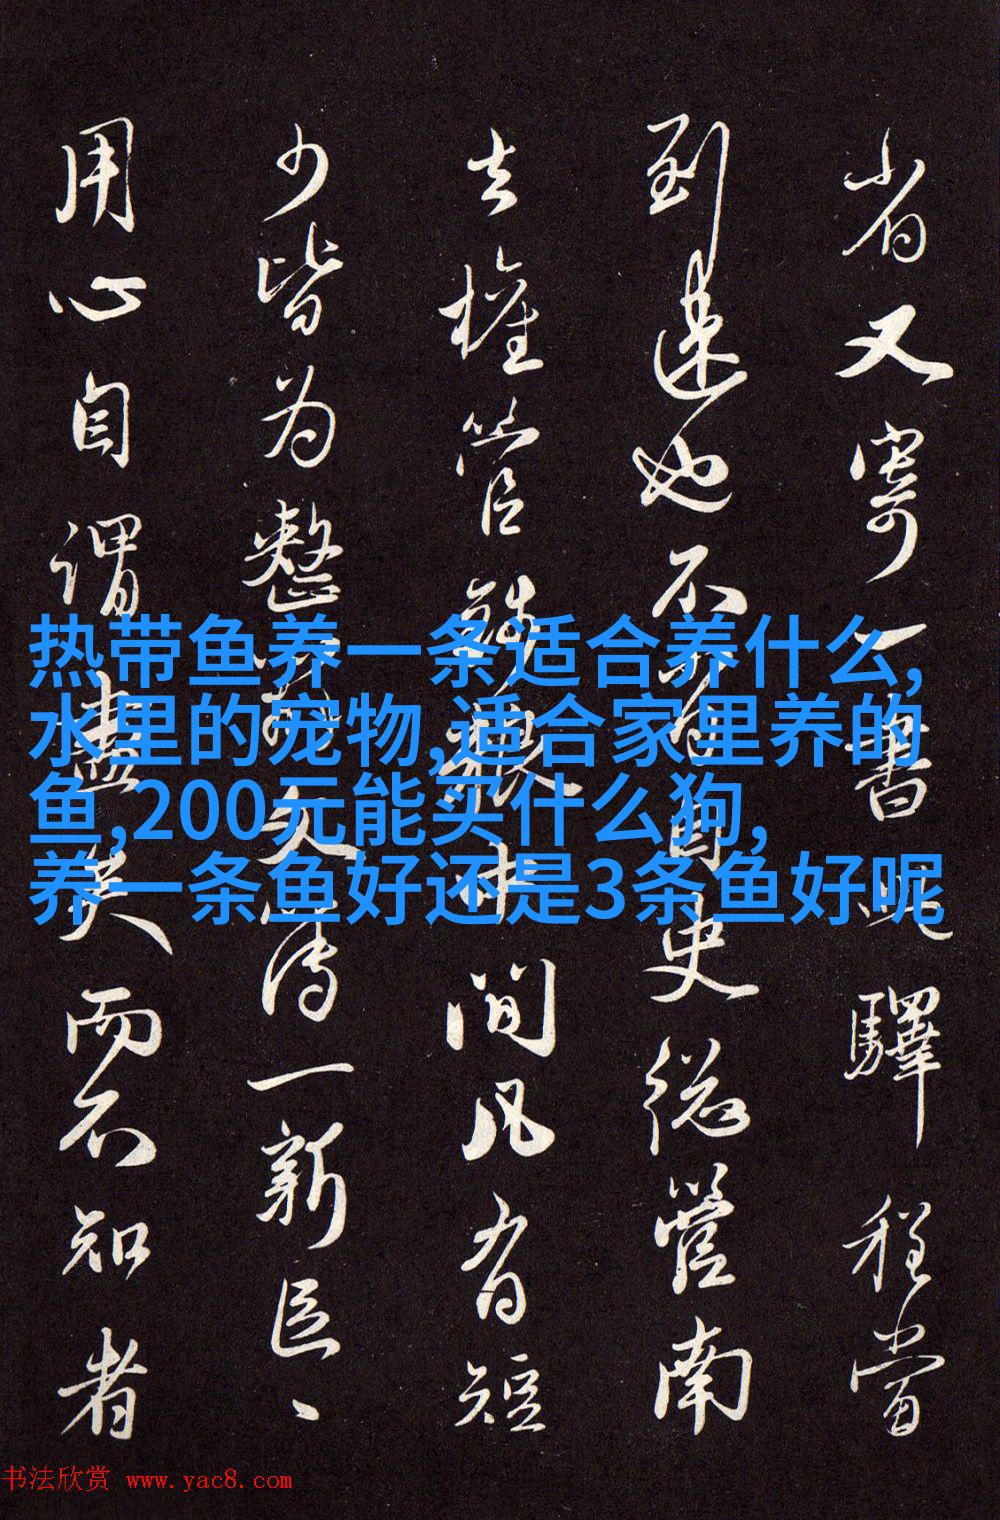 省又寄一書驛程當
到速也不自史南
去權管間凡有短
少皆为整文一新
用心自謂盡矣而不知者
热带鱼养一条适合养什么,
水里的宠物,适合家里养的
鱼,200元能买什么狗,
养一条鱼好还是3条鱼好呢
书法欣赏 www.yac8.com